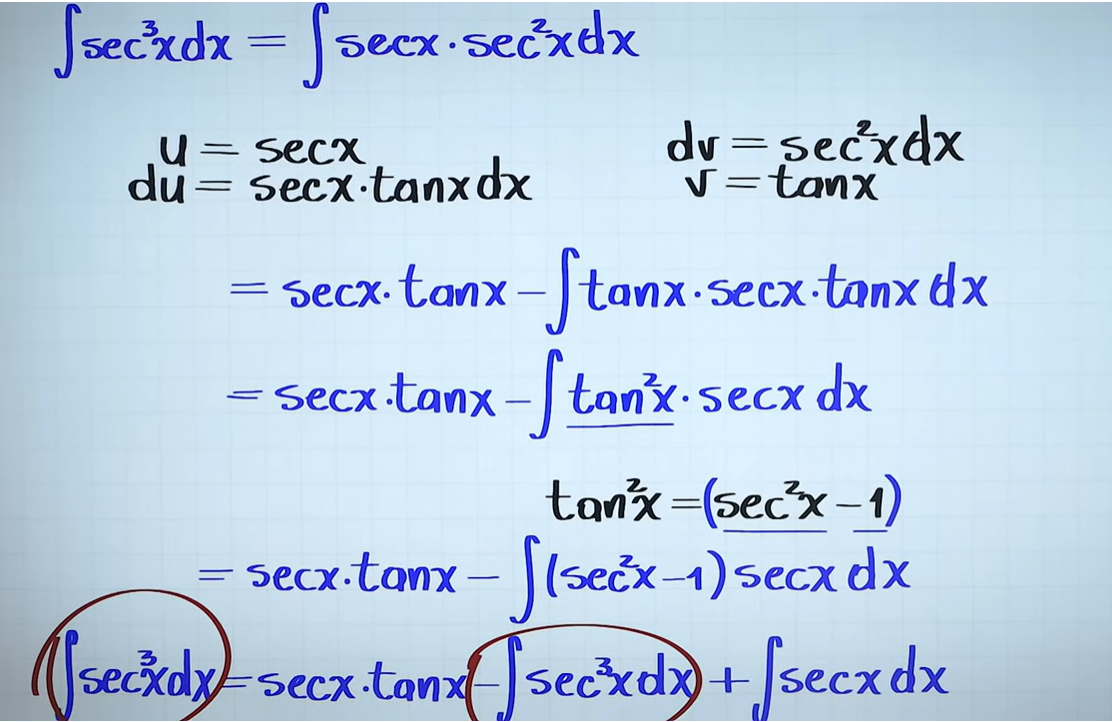 ∫sec³xdx = ∫secx·sec²xdx
u = secx dv = sec²xdx
du = secx·tanxdx v = tanx
= secx·tanx − ∫tanx·secx·tanx dx
= secx·tanx − ∫tan²x·secx dx
tan²x = (sec²x − 1)
= secx·tanx − ∫(sec²x−1)secx dx
∫sec³xdx = secx·tanx − ∫sec³xdx + ∫secx dx